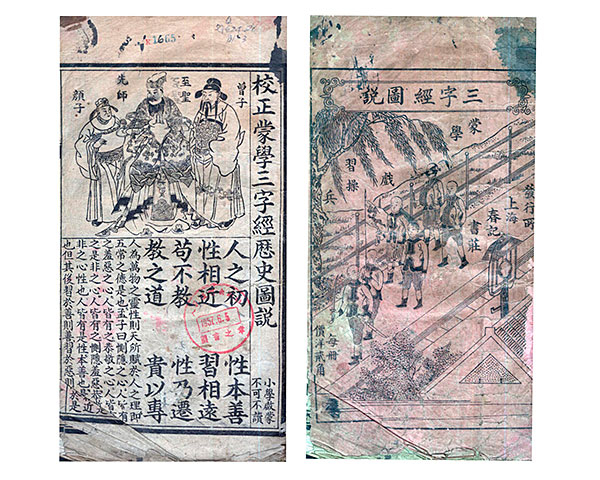 校正蒙學三字經歷史圖說
曾子
至聖
先師
顏子
小學啟蒙
不可不讀
人之初 性本善
性相近 習相遠
苟不教 性乃遷
教之道 貴以專
人為萬物之靈性則天所賦於人之理即
五常之德是也孟子曰惻隱之心人皆有
之羞惡之心人皆有之恭敬之心人皆有
之是非之心人皆有之惻隱羞惡恭敬是
非之心性也人皆有是性本善也
也但其後習於善則善習於惡則
1957.6.5
三字經圖說
蒙學
戲
習操
兵
發行所
上海
春記
書莊
每冊
價洋貳角